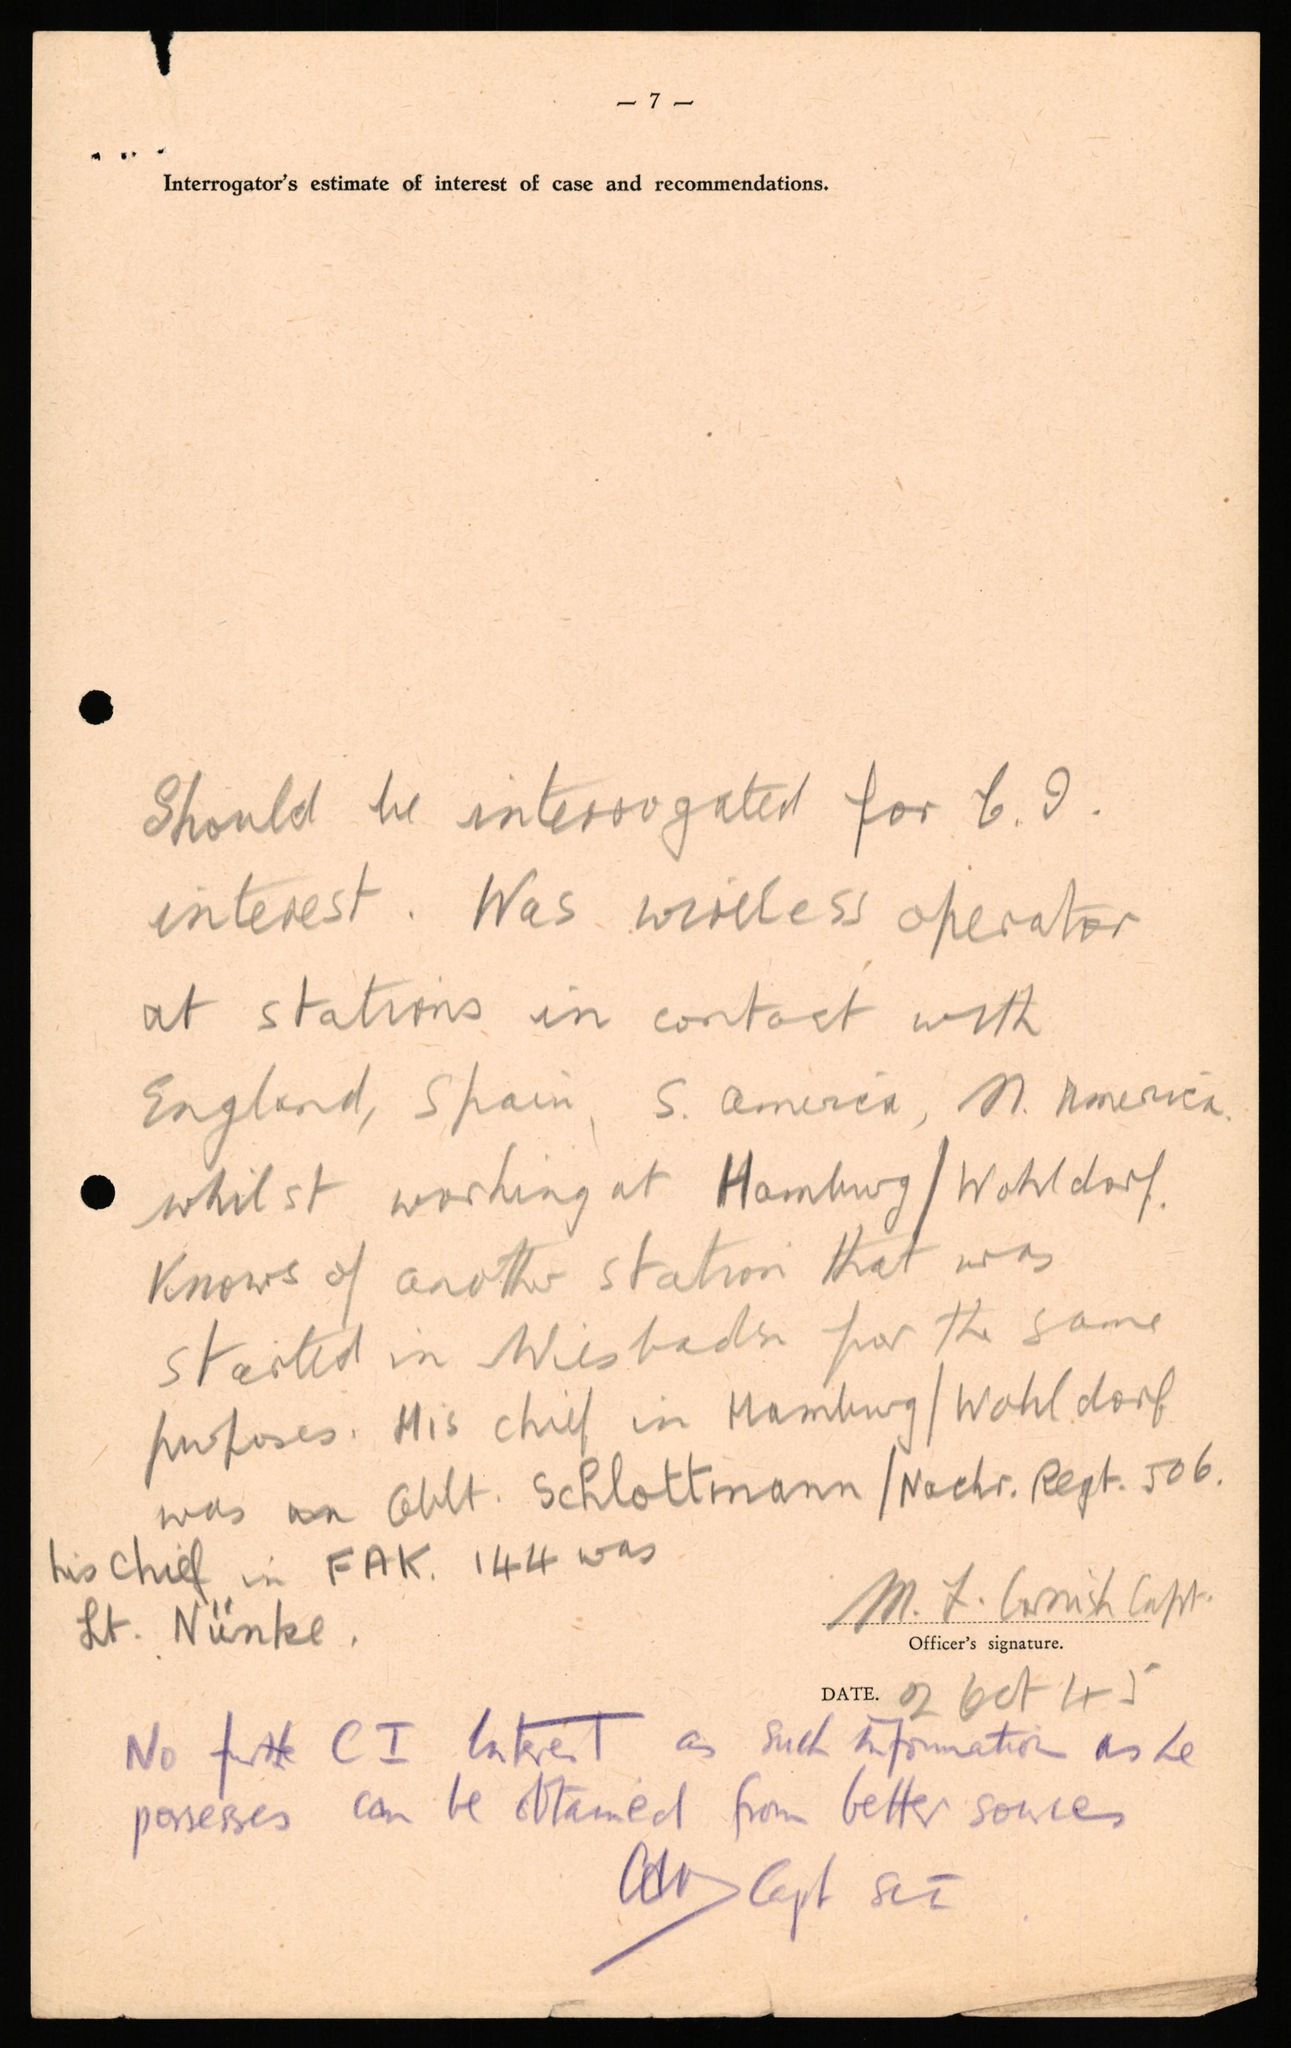 — 7 —
Interrogator's estimate of interest of case and recommendations.
Should be interrogated for C.I.
interest. Was wireless operator
at stations in contact with
England, Spain, S. America, N. America.
whilst working at Hamburg/Wohldorf.
Knows of another station that was
started in Wiesbaden for the same
purposes. His chief in Hamburg/Wohldorf
was an Oblt. Schlottmann/Nachr. Regt. 506.
his chief in FAK. 144 was
Lt. Nünke.
M. F. Cornish Capt.
Officer's signature.
DATE. 2 Oct 45
No furth CI Interest as such information as he
possesses can be obtained from better sources
Capt